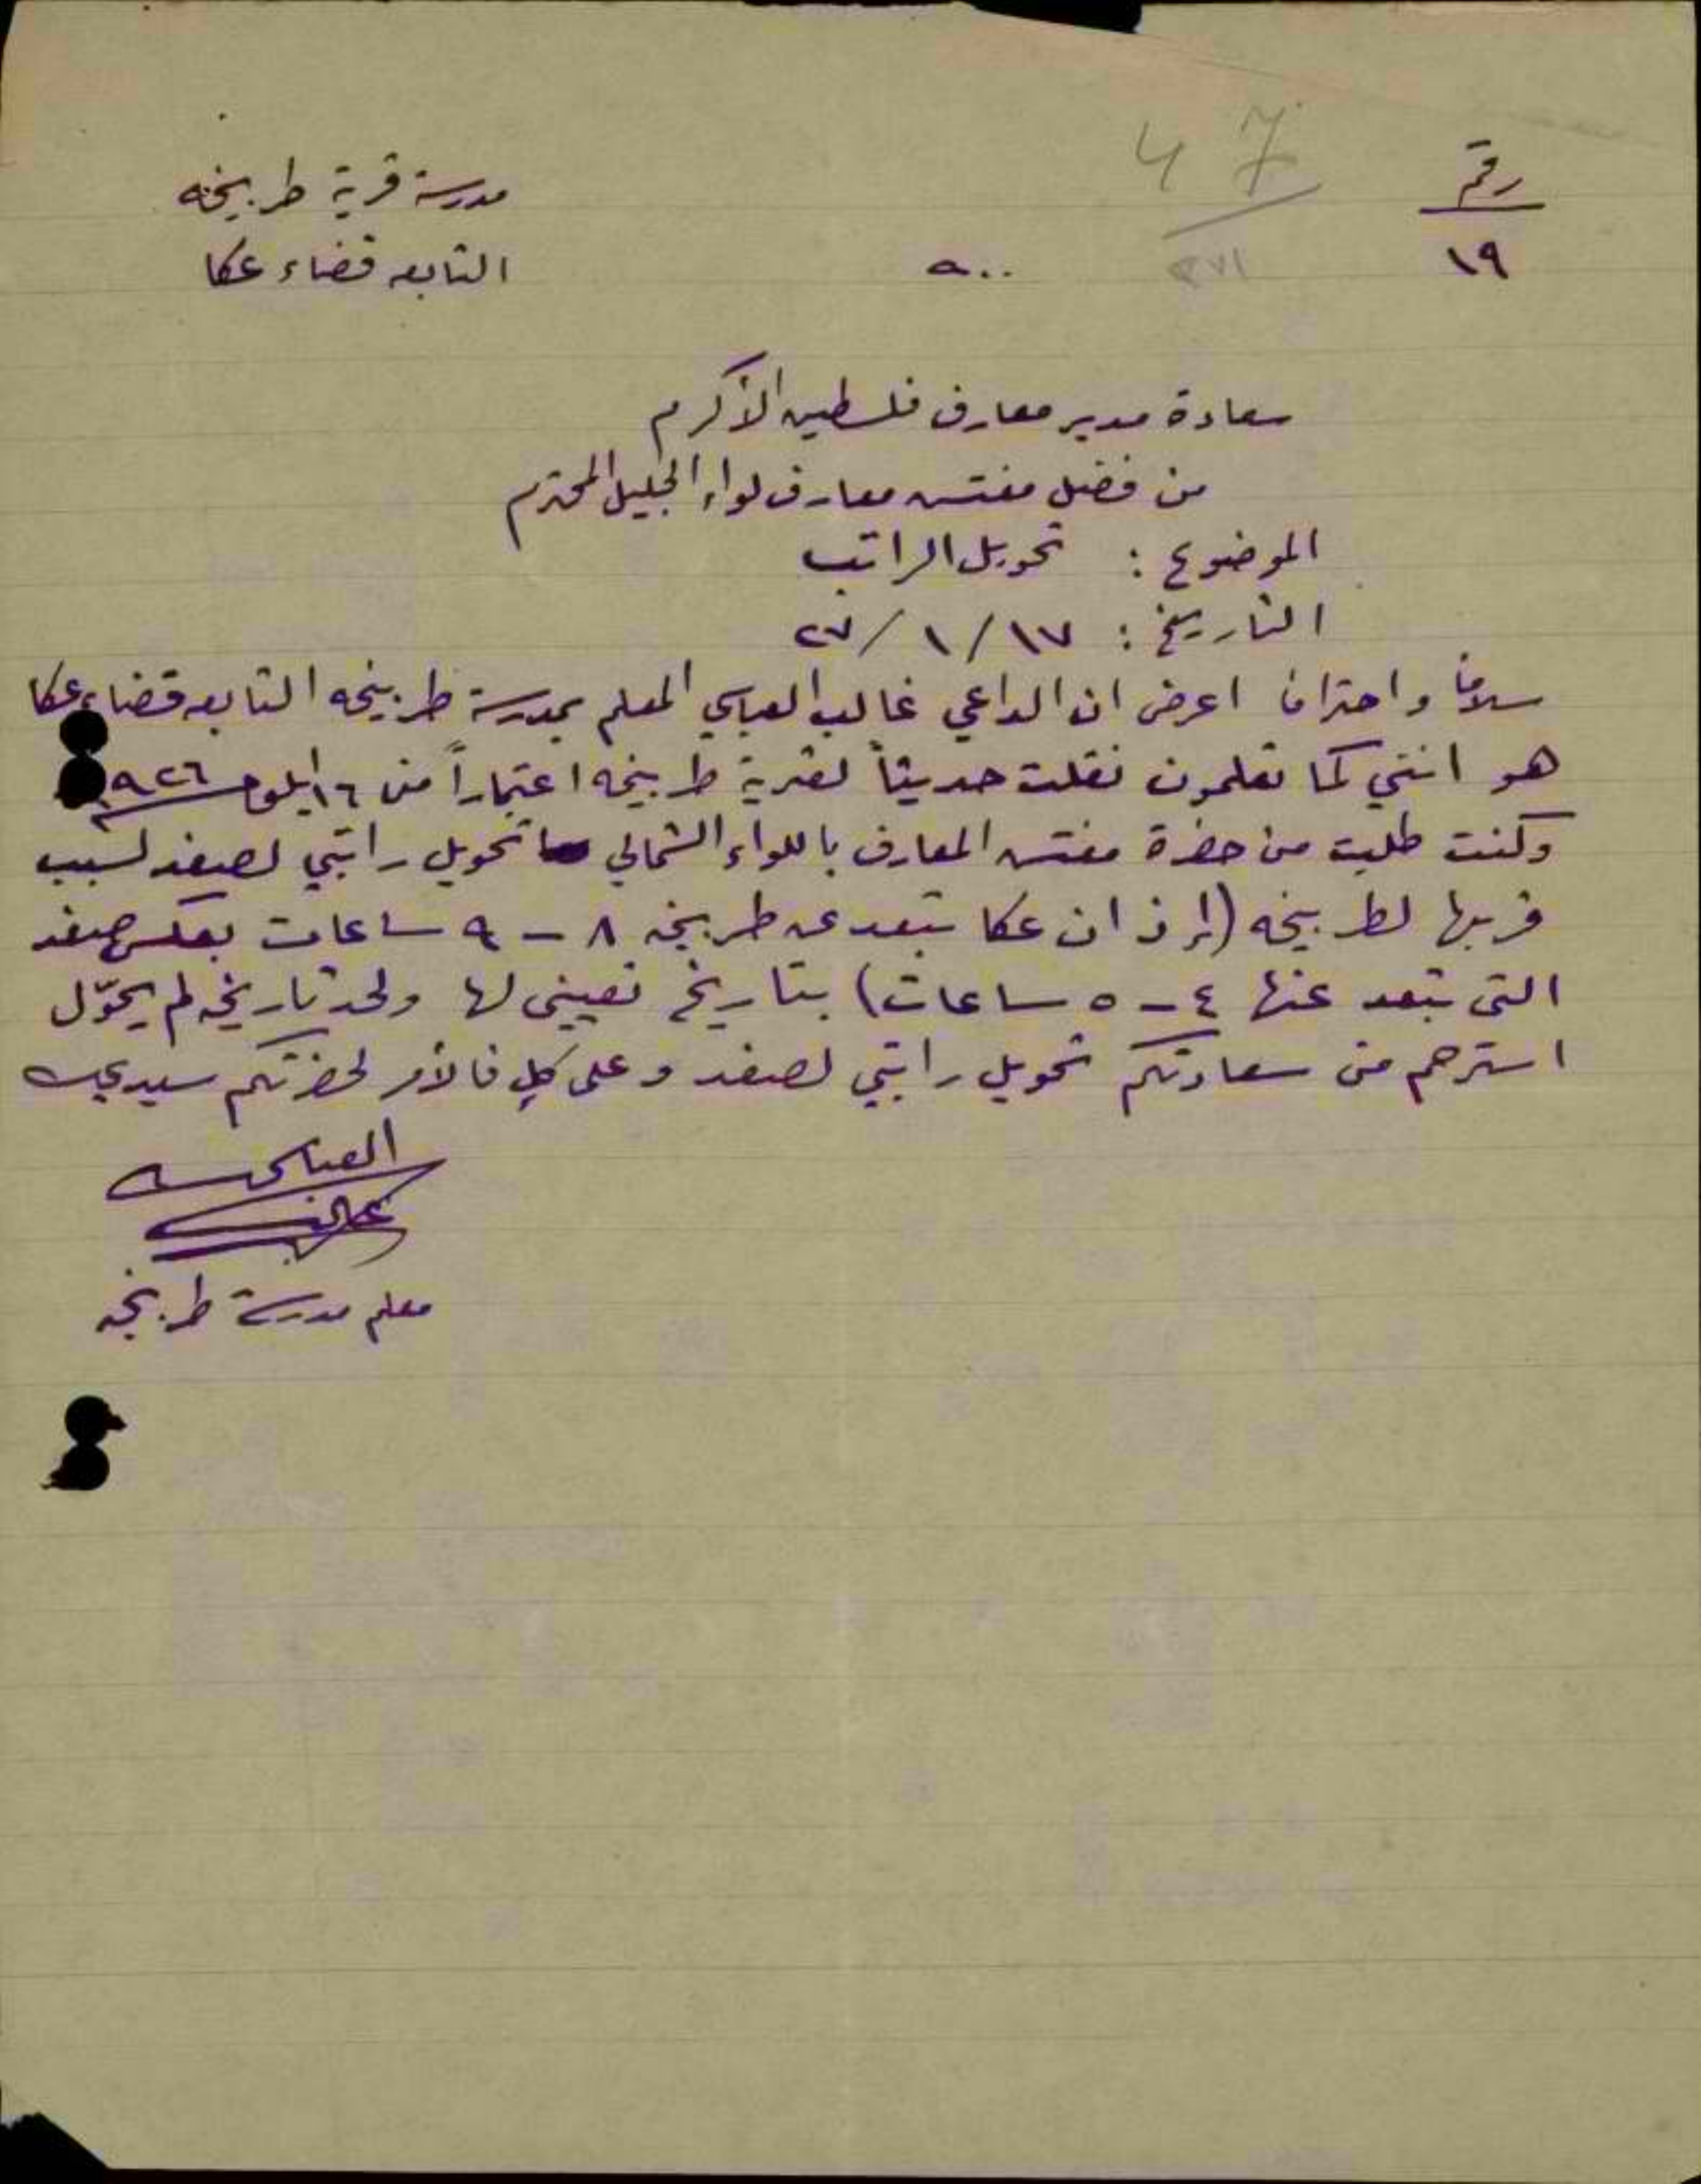 رقم
١٩
47
مدرسة قرية طربيخه
التابعه قضاء عكا
سعادة مدير معارف فلسطين الأكرم
من فضل مفتش معارف لواء الجليل المحترم
الموضوع : تحويل الراتب
التاريخ : ١٧/ ١/ ٢٧
سلاماً واحتراماً اعرض ان الداعي غالب العباسي المعلم بمدرسة طربيخه التابعه قضاء عكا
هو انني كما تعلمون نقلت حديثاً لقرية طربيخه اعتباراً من ١٦ ايلول ٩٢٦
وكنت طلبت من حضرة مفتش المعارف باللواء الشمالي تحويل راتبي لصفد لسبب
قربها لطربيخه (إذ ان عكا تبعد عن طربيخه ٨ - ٩ ساعات بعكس صفد
التي تبعد عنها ٤ - ٥ ساعات) بتاريخ تعييني لها ولحد تاريخه لم يحوّل
استرحم من سعادتكم تحويل راتبي لصفد وعلى كلٍ فالأمر لحضرتكم سيدي
العباسي
غالب
معلم مدرسة طربيخه